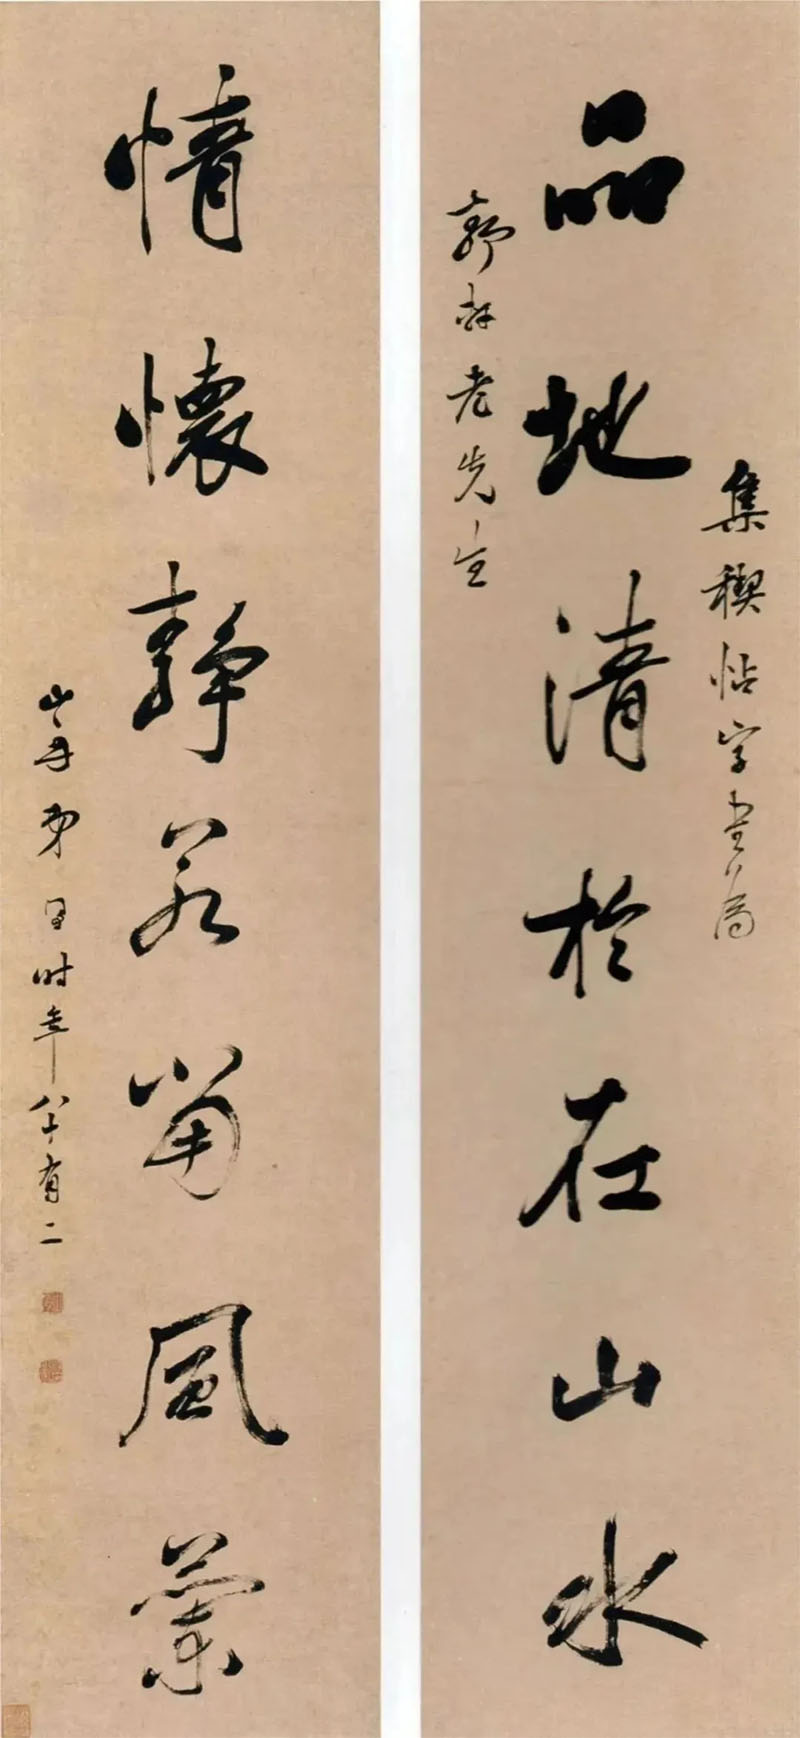 集禊帖字書爲
品地清於在山水
老先生
情懷静若當風蘭
山舟弟時年八十有二